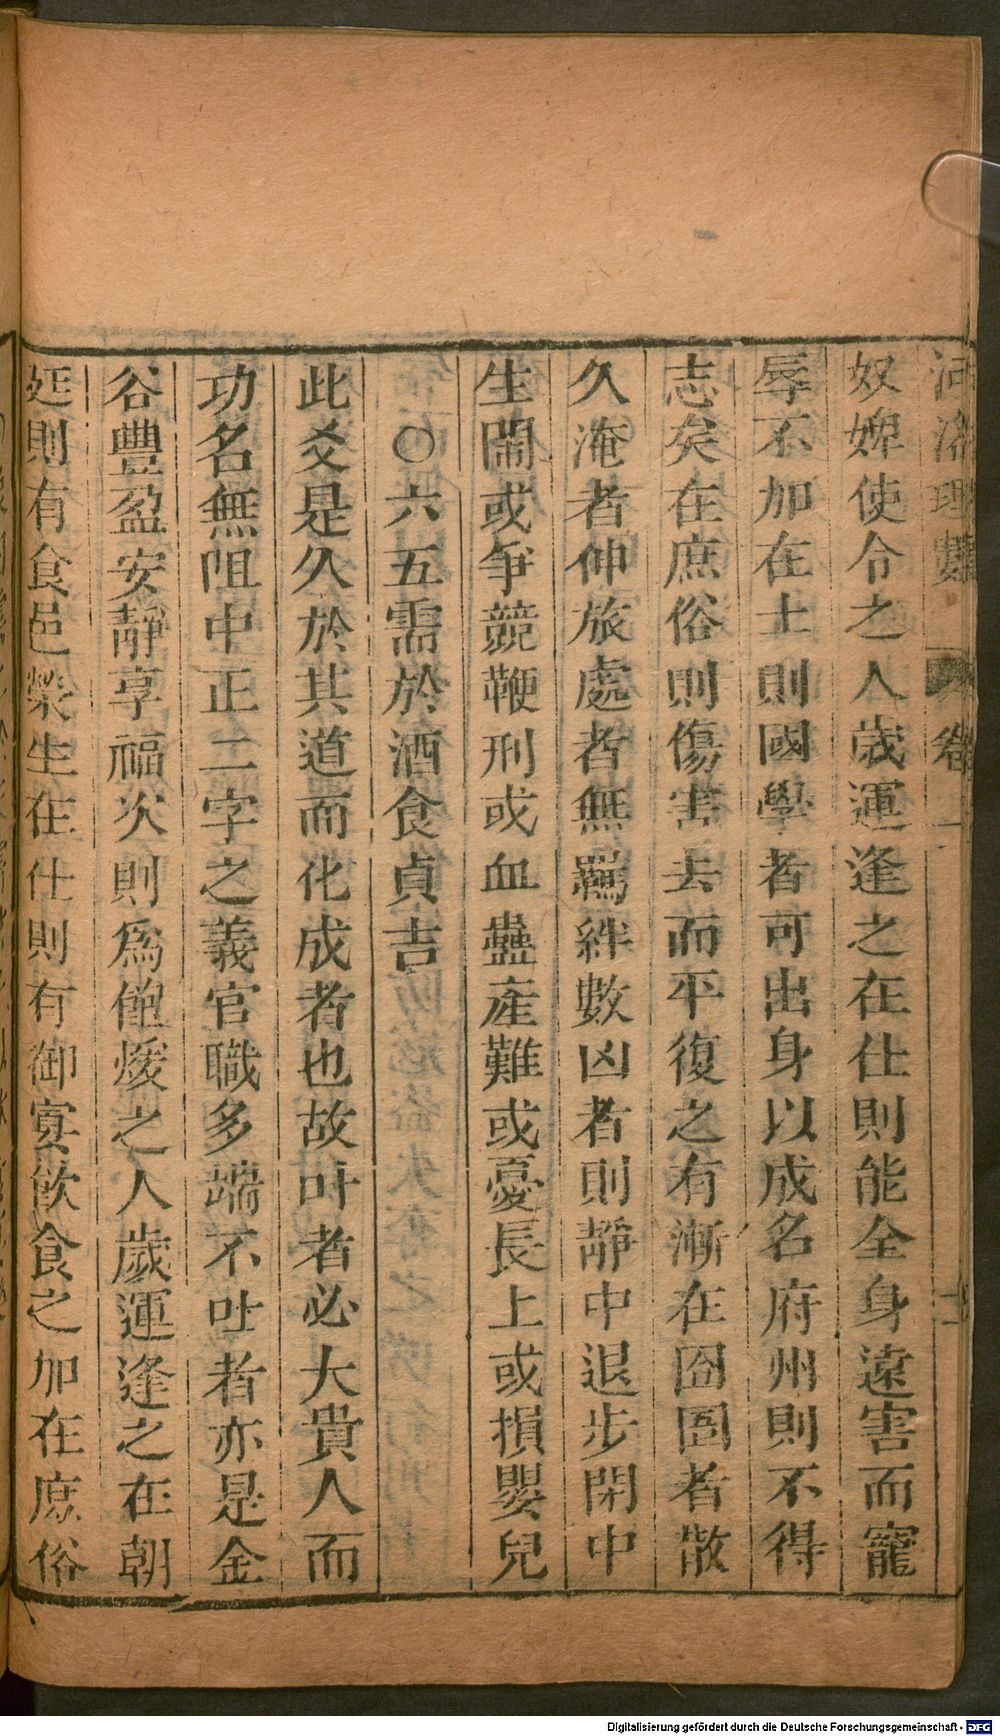 河洛理數 卷一
奴婢使令之人歲運逢之在仕則能全身遠害而寵
辱不加在士則國學者可出身以成名府州則不得
志矣在庶俗則傷害去而平復之有漸在囹圄者散
久淹者伸旅處者無羈絆數凶者則靜中退步閑中
生鬧或爭競鞭刑或血蠱產難或憂長上或損嬰兒
○六五需於酒食貞吉
此爻是久於其道而化成者也故叶者必大貴人而
功名無阻中正二字之義官職多端不吐者亦是金
谷豐盈安靜享福次則爲飽煖之人歲運逢之在朝
廷則有食邑榮生在仕則有御宴飲食之加在庶俗
Digitalisierung gefördert durch die Deutsche Forschungsgemeinschaft - DFG